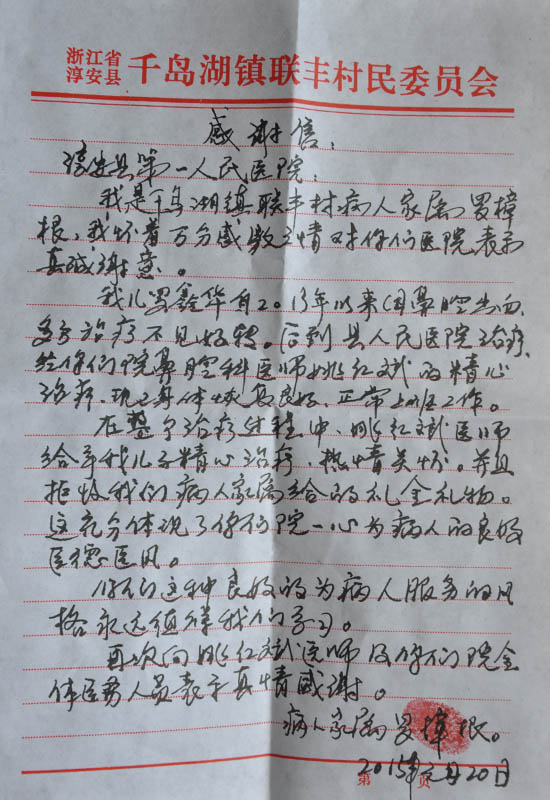 浙江省
淳安县 千岛湖镇联丰村民委员会
感谢信：
淳安县第一人民医院：
我是千岛湖镇联丰村病人家属罗樟
根，我怀着万分感激之情对你们医院表示
真诚谢意。
我儿罗鑫华自2013年以来因鼻腔出血，
多方治疗不见好转。后到县人民医院治疗，
经你们院鼻腔科医师姚红斌的精心
治疗，现已身体恢复良好，正常上班工作。
在整个治疗过程中，姚红斌医师
给予我儿子精心治疗，热情关怀。并且
拒收我们病人家属给的礼金礼物。
这充分体现了你们院一心为病人的良好
医德医风。
你们这种良好的为病人服务的风
格永远值得我们学习。
再次向姚红斌医师及你们院全
体医务人员表示真情感谢。
病人家属罗樟根。
2015年元月20日
第 页